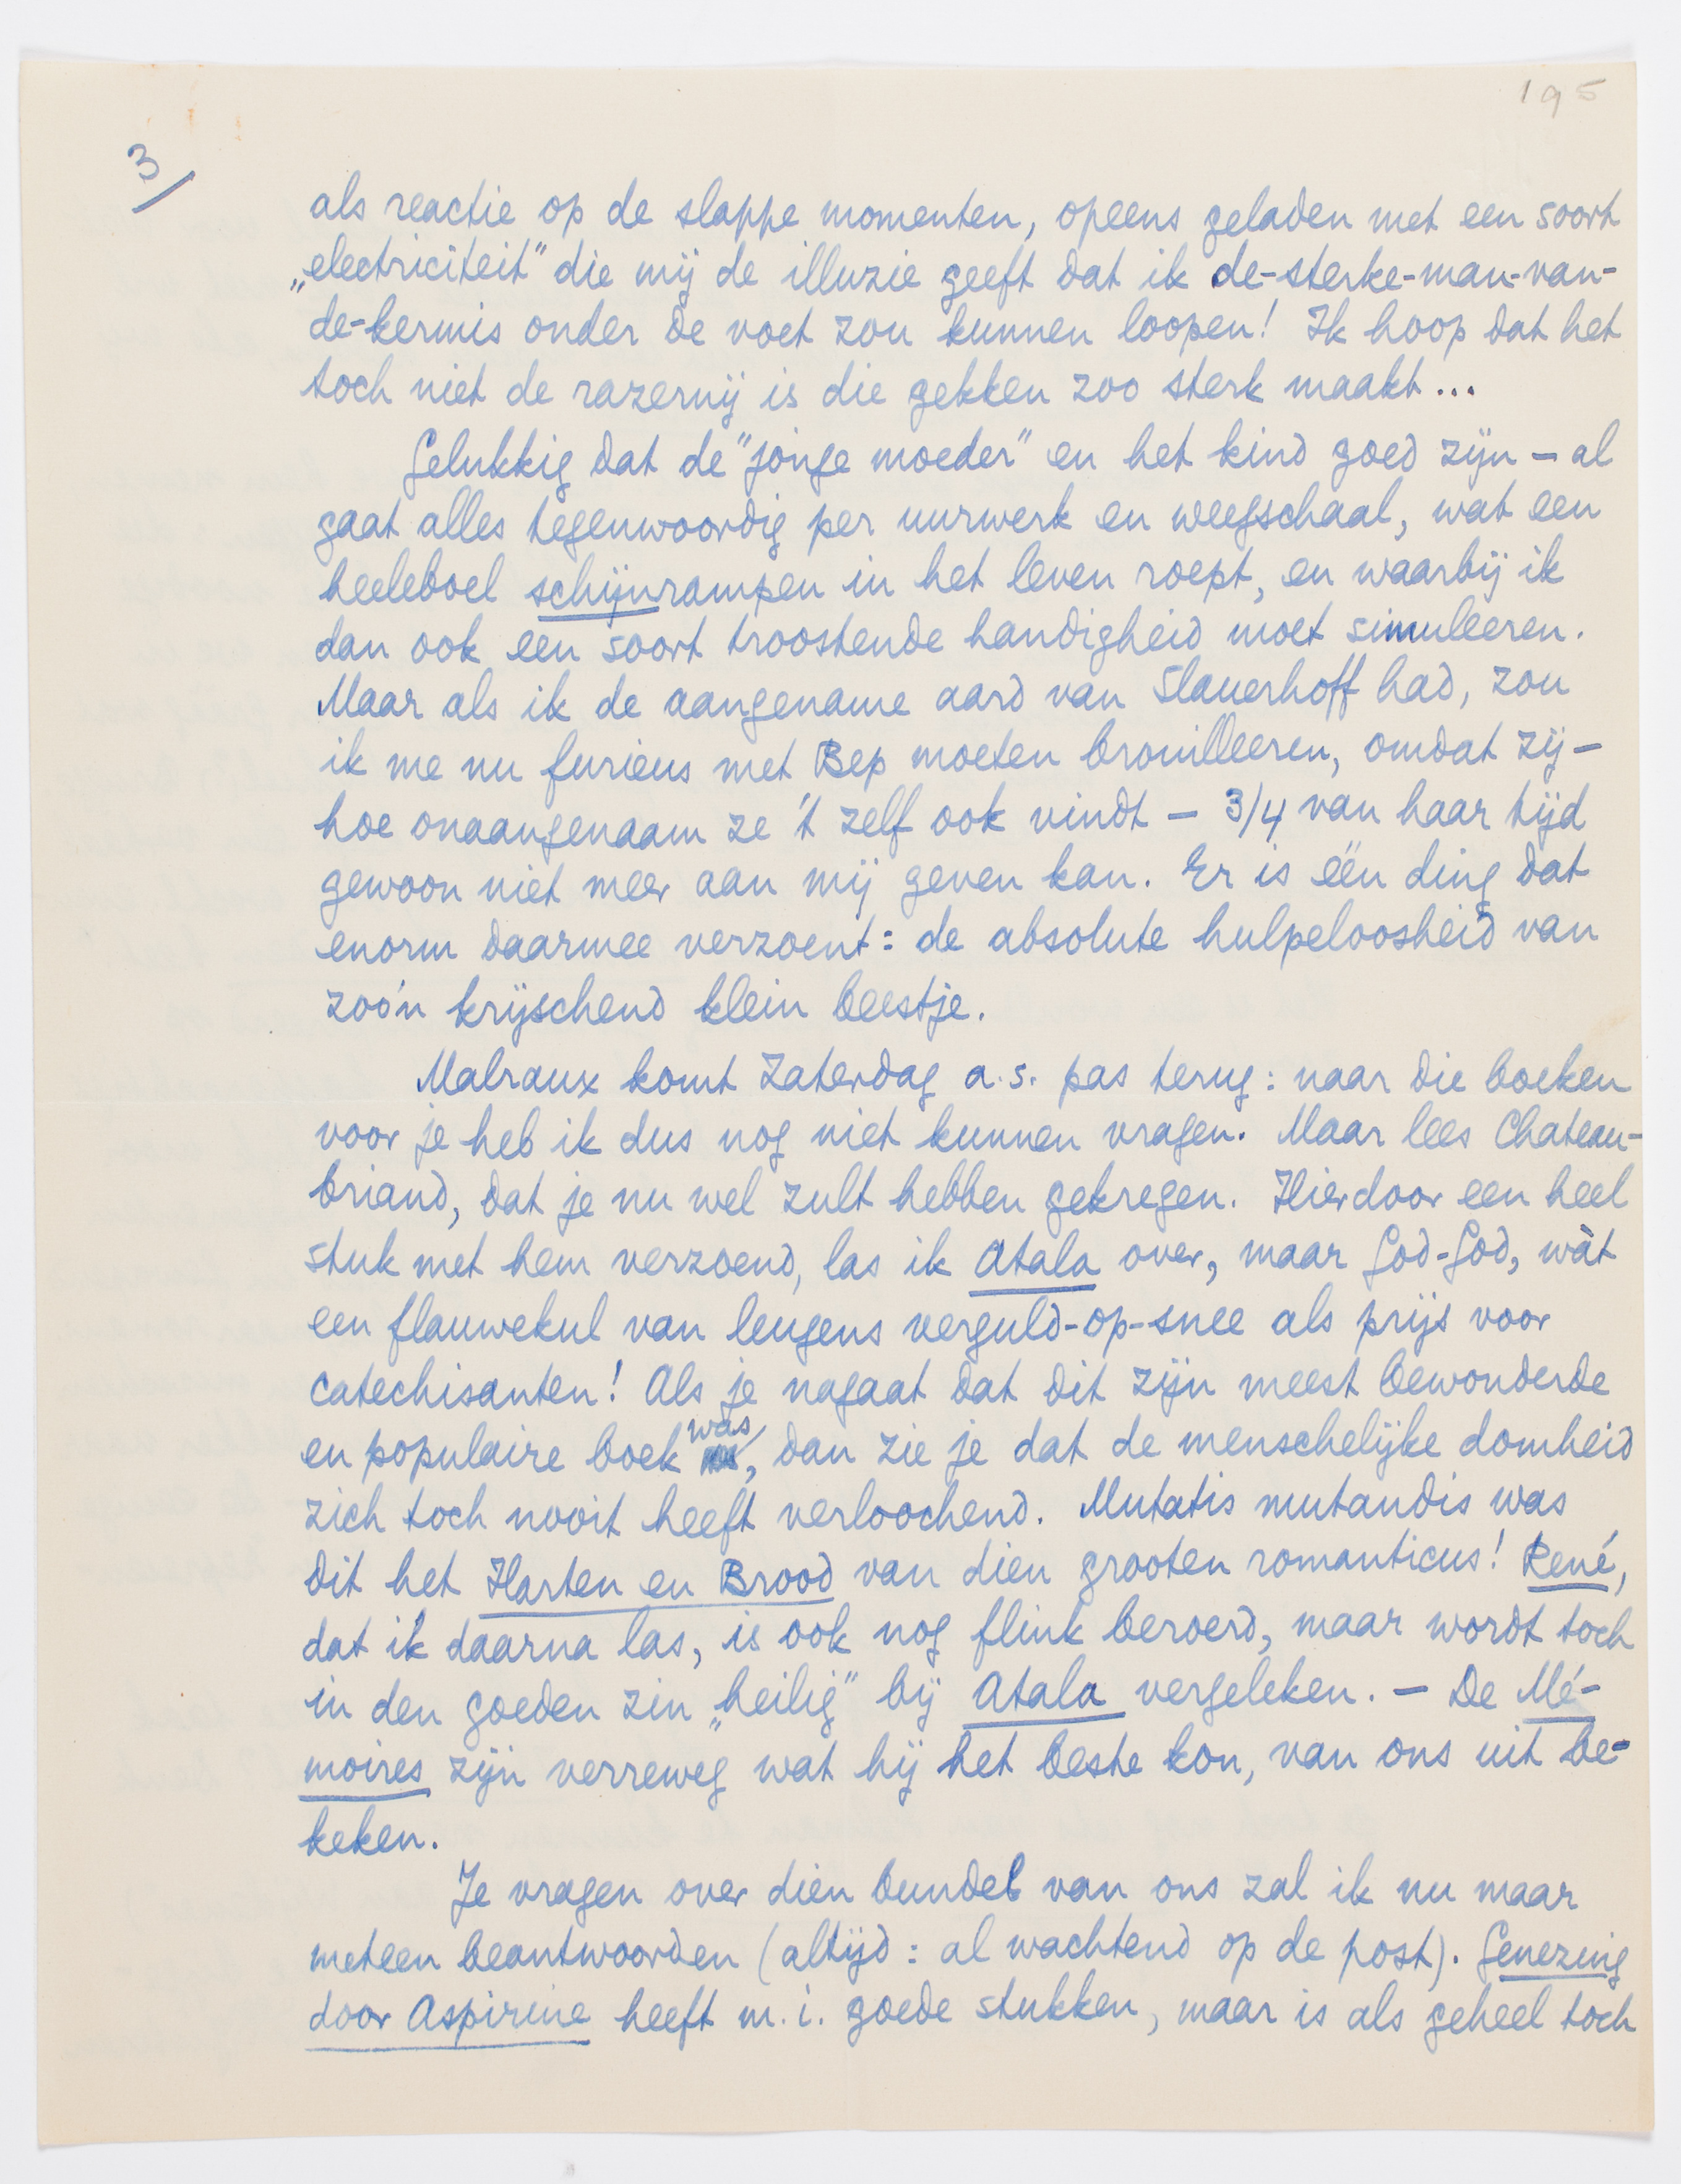 195
3/
als reactie op de slappe momenten, opeens geladen met een soort
„electriciteit" die mij de illuzie geeft dat ik de-sterke-man-van-
de-kermis onder de voet zou kunnen loopen! Ik hoop dat het
toch niet de razernij is die gekken zoo sterk maakt...
Gelukkig dat de "jonge moeder" en het kind goed zijn — al
gaat alles tegenwoordig per uurwerk en weegschaal, wat een
heeleboel schijnrampen in het leven roept, en waarbij ik
dan ook een soort troostende handigheid moet simuleeren.
Maar als ik de aangename aard van Slauerhoff had, zou
ik me nu furieus met Bep moeten brouilleeren, omdat zij —
hoe onaangenaam ze 't zelf ook vindt — 3/4 van haar tijd
gewoon niet meer aan mij geven kan. Er is één ding dat
enorm daarmee verzoent: de absolute hulpeloosheid van
zoo'n krijschend klein beestje.
Malraux komt Zaterdag a.s. pas terug: naar die boeken
voor je heb ik dus nog niet kunnen vragen. Maar lees Chateau-
briand, dat je nu wel zult hebben gekregen. Hierdoor een heel
stuk met hem verzoend, las ik Atala over, maar God-God, wàt
een flauwekul van leugens verguld-op-snee als prijs voor
catechisanten! Als je nagaat dat dit zijn meest bewonderde
en populaire boek was, dan zie je dat de menschelijke domheid
zich toch nooit heeft verloochend. Mutatis mutandis was
dit het Harten en Brood van dien grooten romanticus! René,
dat ik daarna las, is ook nog flink beroerd, maar wordt toch
in den goeden zin „heilig" bij Atala vergeleken. — De Mé-
moires zijn verreweg wat hij het beste kon, van ons uit be-
keken.
Je vragen over dien bundel van ons zal ik nu maar
meteen beantwoorden (altijd: al wachtend op de post). Genezing
door Aspirine heeft m.i. goede stukken, maar is als geheel toch